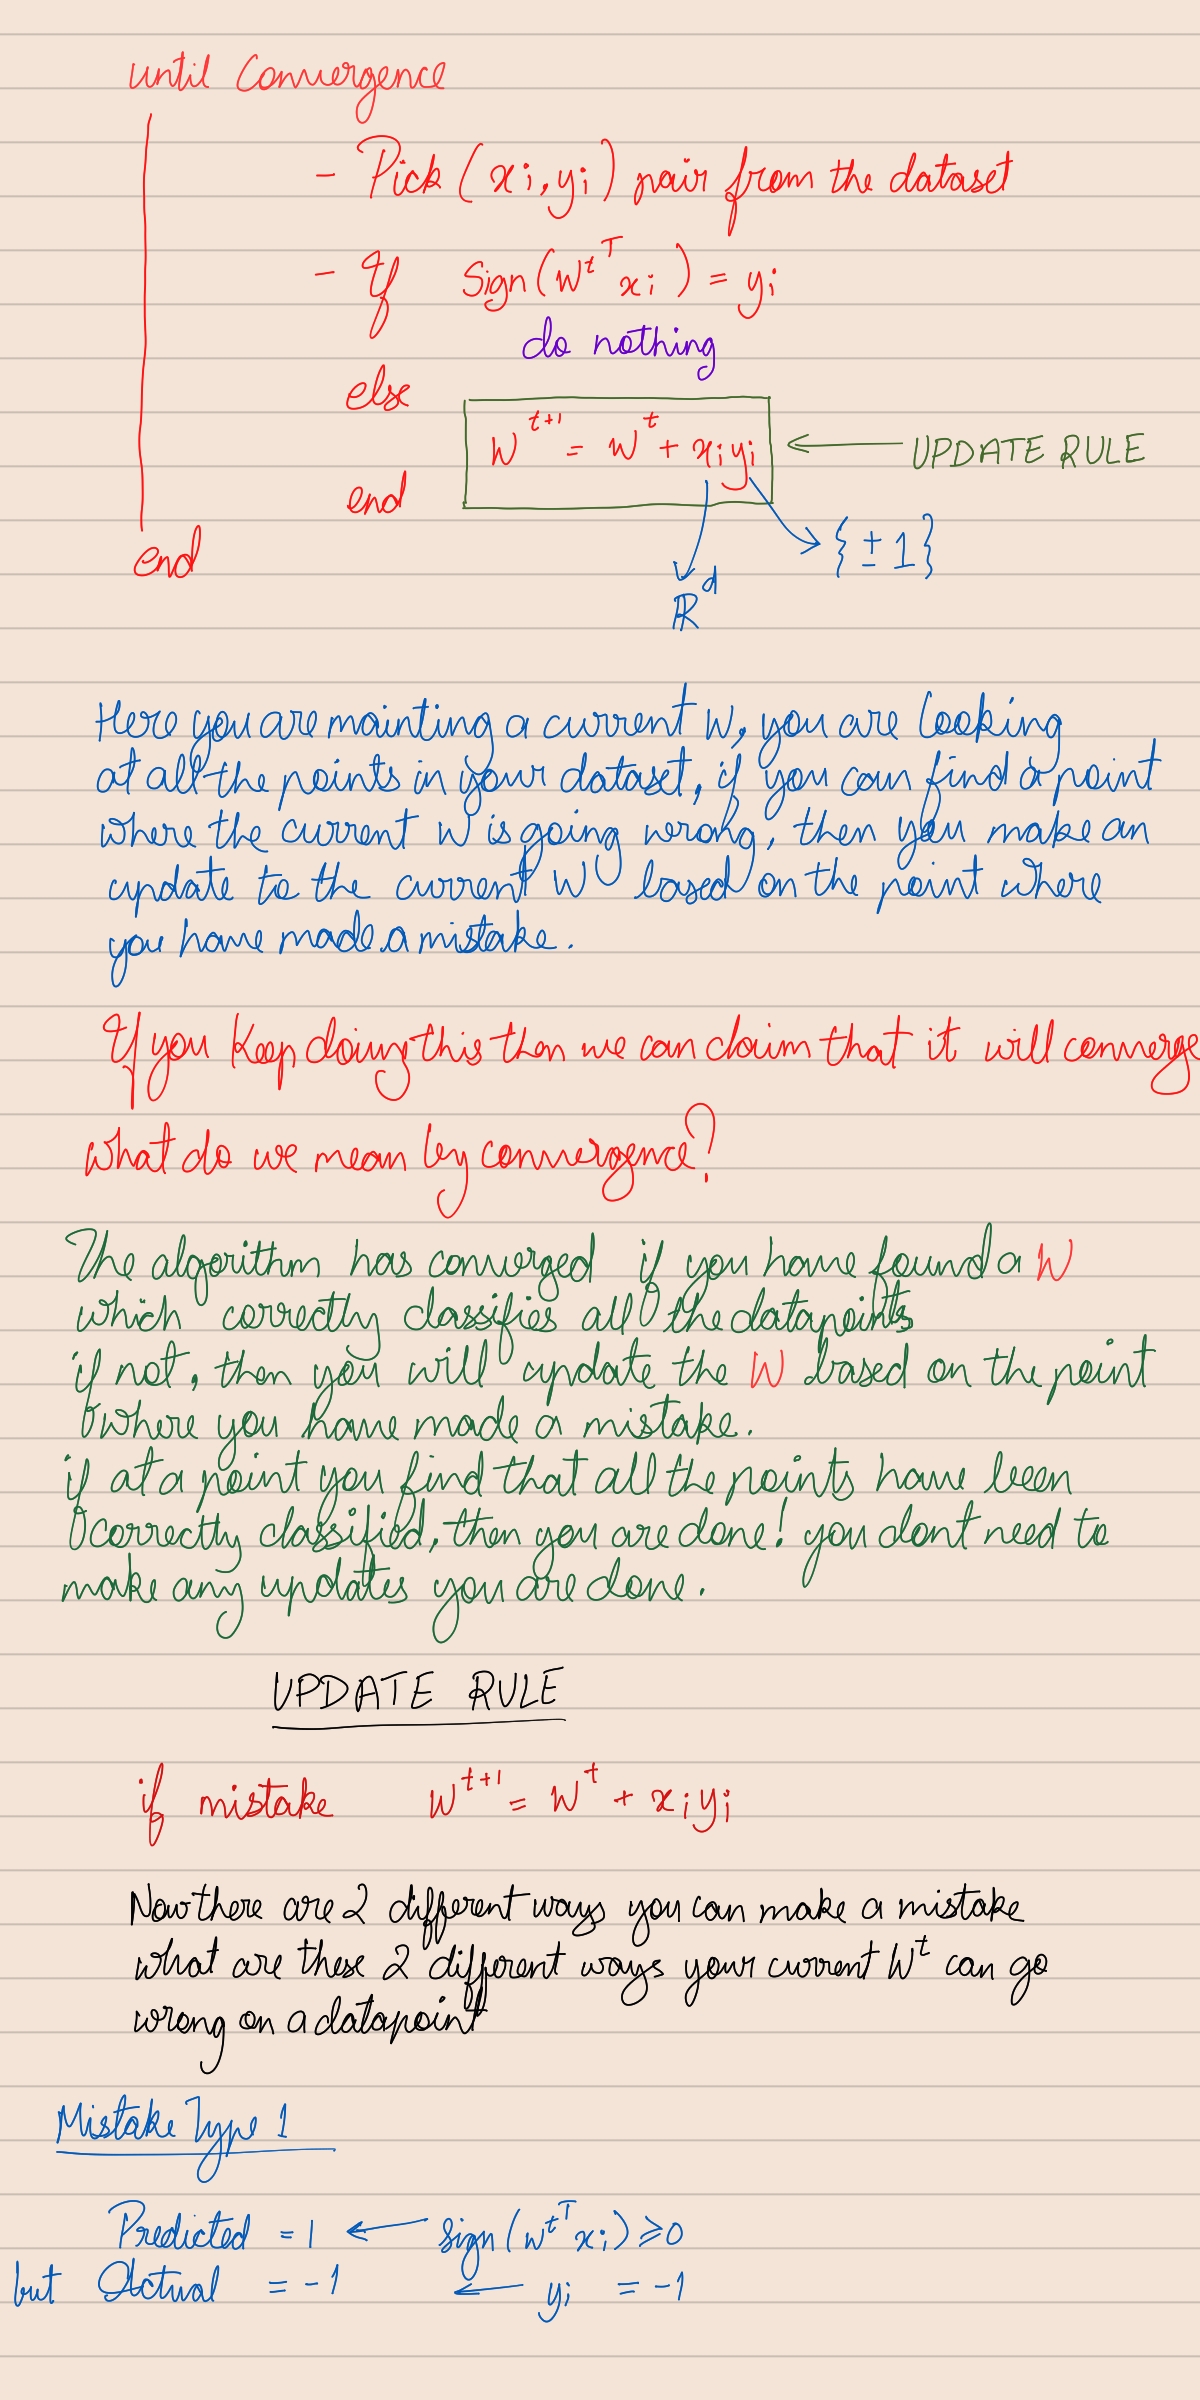 until Convergence
- Pick (xi, yi) pair from the dataset
- If Sign(W^t^T xi) = yi
do nothing
else
W^t+1 = W^t + xi yi ← UPDATE RULE
end
{±1}
end
R^d
Here you are mainting a current W, you are looking
at all the points in your dataset, if you can find a point
where the current W is going wrong, then you make an
update to the current W based on the point where
you have made a mistake.
If you keep doing this then we can claim that it will converge
what do we mean by convergence?
The algorithm has converged if you have found a W
which correctly classifies all the datapoints
if not, then you will update the W based on the point
where you have made a mistake.
if at a point you find that all the points have been
correctly classified, then you are done! you dont need to
make any updates you are done.
UPDATE RULE
if mistake W^t+1 = W^t + xi yi
Now there are 2 different ways you can make a mistake
what are these 2 different ways your current W^t can go
wrong on a datapoint
Mistake Type 1
Predicted = 1 ← Sign(W^t^T xi) ≥ 0
but Actual = -1 ← yi = -1